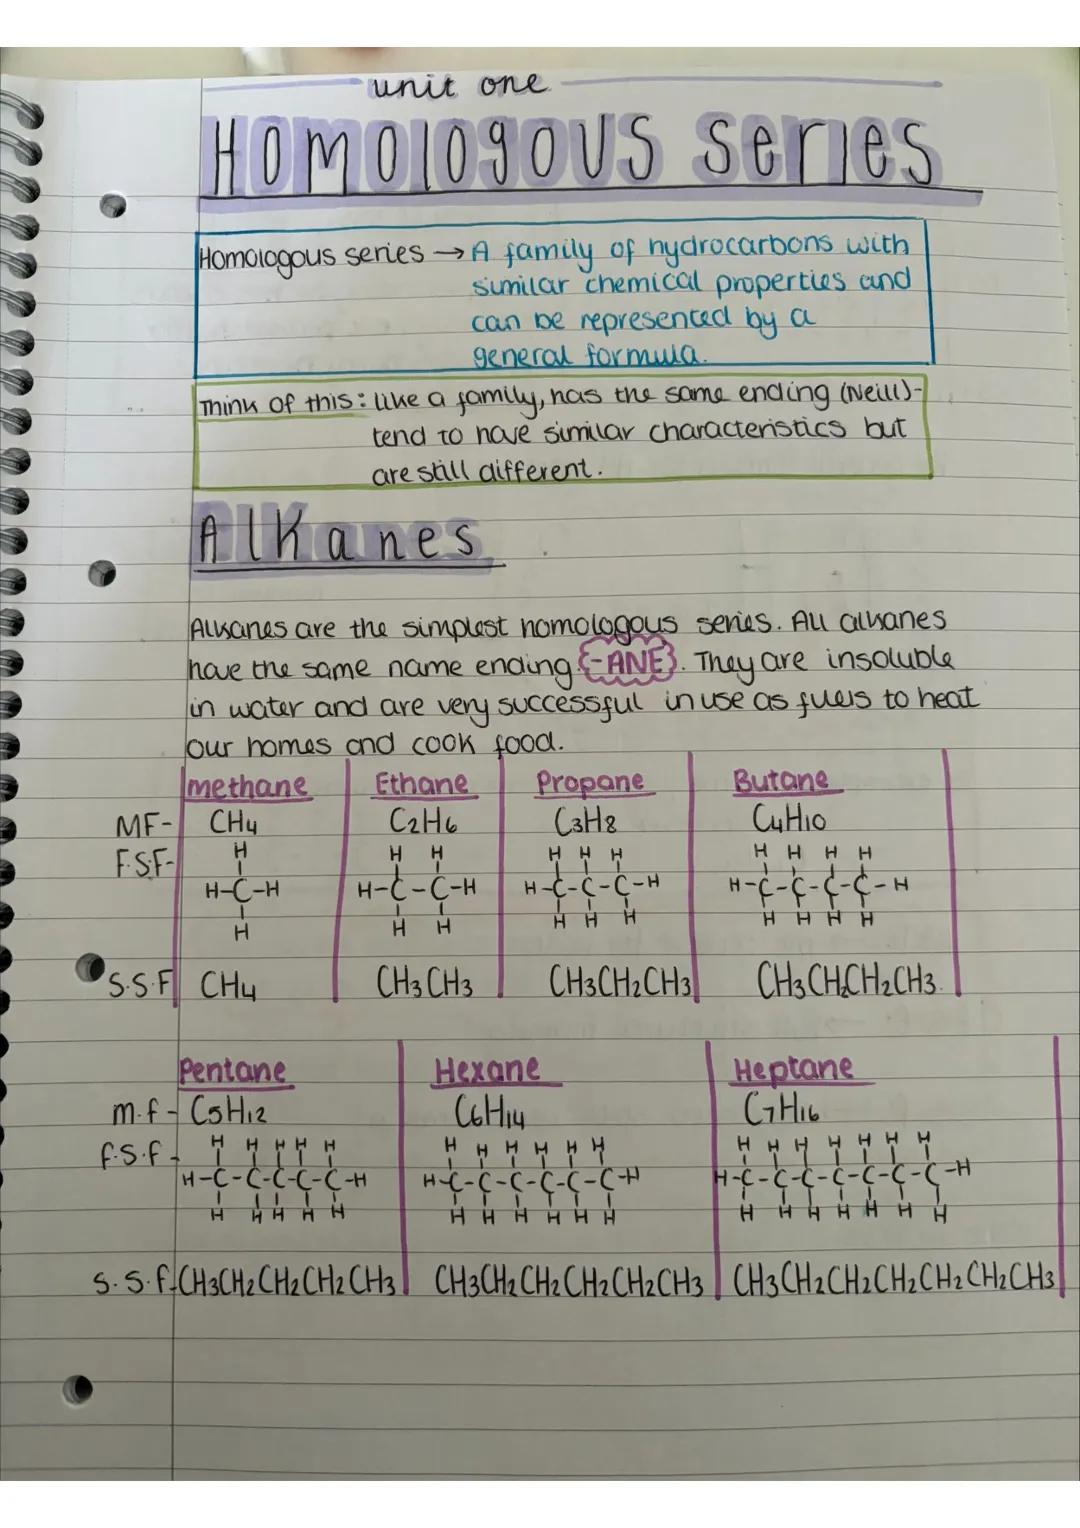 unit one
Homologous series
Homologous series → A family of hydrocarbons with
similar chemical properties and
can be represented by a
general formula.
Think of this: like a family, has the same ending (Neill)-
tend to have similar characteristics but
are still different.
Alkanes
Alkanes are the simplest homologous series. All alkanes
have the same name ending {-ANE}. They are insoluble
in water and are very successful in use as fuels to heat
our homes and cook food.
methane Ethane Propane Butane
MF- CH4 C2H6 C3H8 C4H10
F.S.F-
H H H H H H H H H H
H-C-H H-C-C-H H-C-C-C-H H-C-C-C-C-H
H H H H H H H H H H
S.S.F CH4 CH3CH3 CH3CH2CH3 CH3CH2CH2CH3.
Pentane Hexane Heptane
m.f- C5H12 C6H14 C7H16
f.s.f-
H H H H H H H H H H H H H H H H H H
H-C-C-C-C-C-H H-C-C-C-C-C-C-H H-C-C-C-C-C-C-C-H
H H H H H H H H H H H H H H H H H H
s.s.f- CH3CH2CH2CH2CH3 CH3CH2CH2CH2CH2CH3 CH3CH2CH2CH2CH2CH2CH3